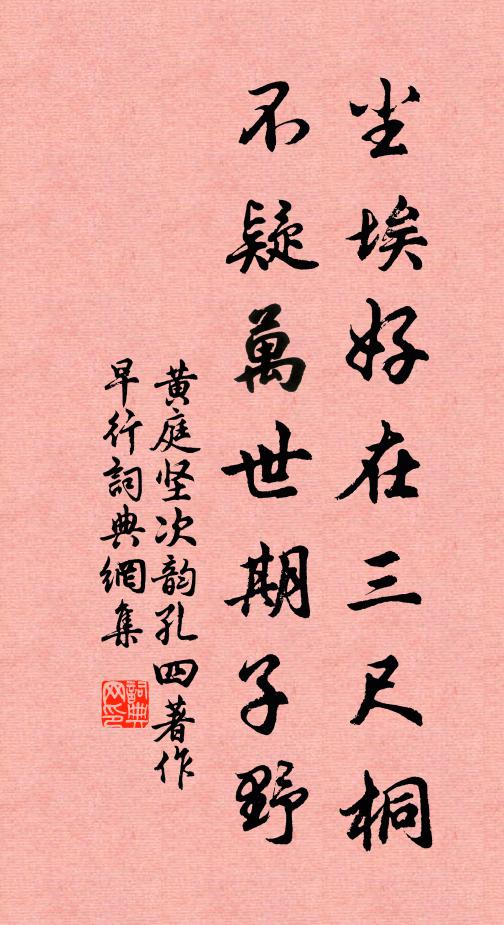 尘埃好在三尺桐
不疑萬世期子野
黄庭坚次韵孔四著作
早行詞典網集
詞典
网印